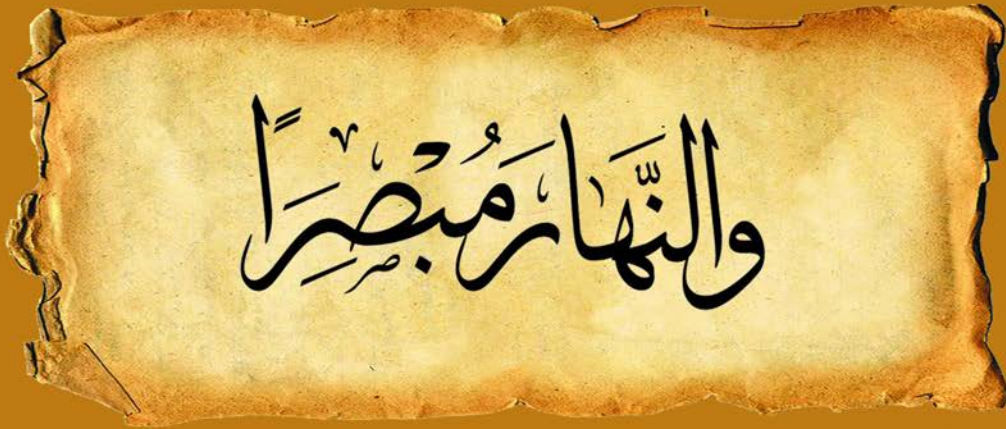 والنَّهَارَ مُبْصِرًا